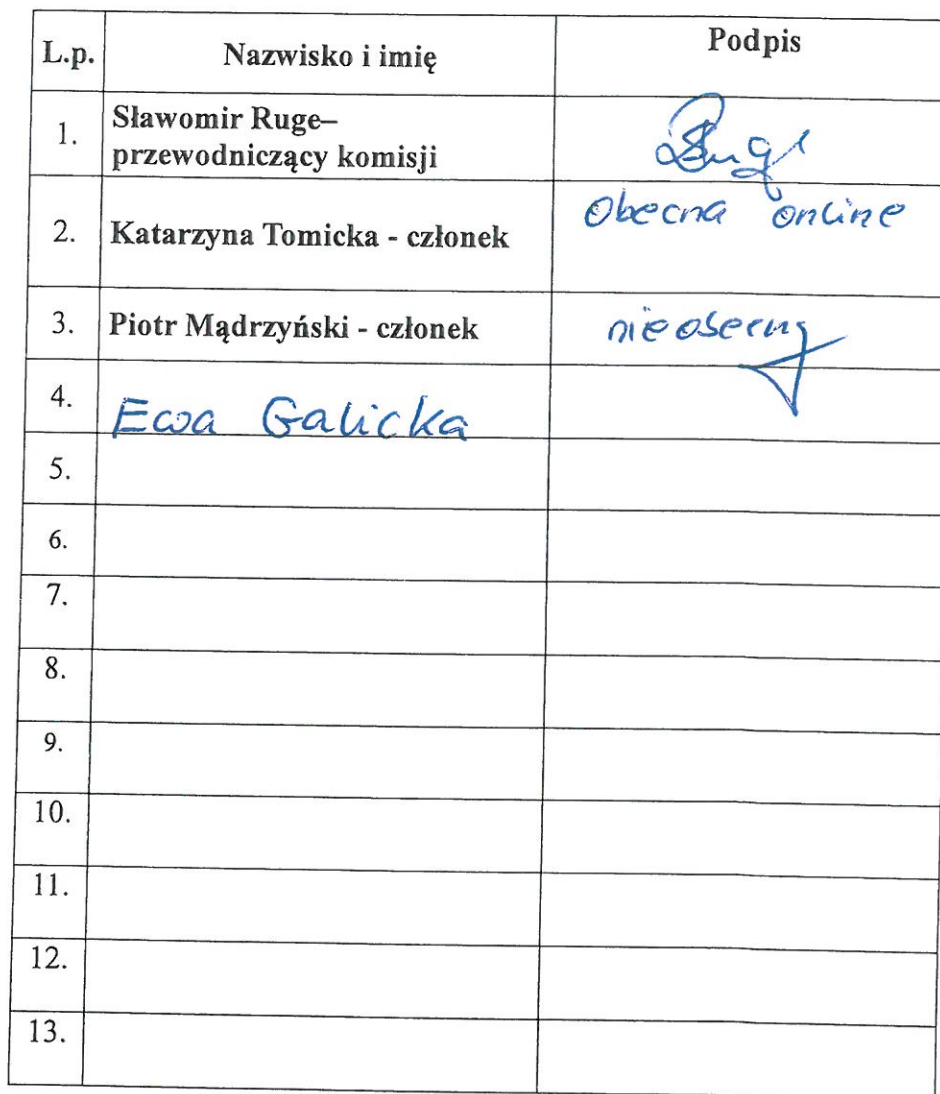 L.p. Nazwisko i imię Podpis
1. Sławomir Ruge–
przewodniczący komisji
2. Katarzyna Tomicka - członek obecna online
3. Piotr Mądrzyński - członek nieobecny
4. Ewa Galicka
5.
6.
7.
8.
9.
10.
11.
12.
13.